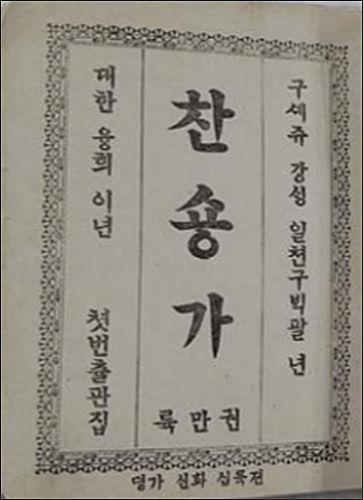 구셰쥬 강싱 일천구빅팔 년
찬숑가
륙만권
대한 융희 이년 첫번츌판집
뎡가 신화 십륙전